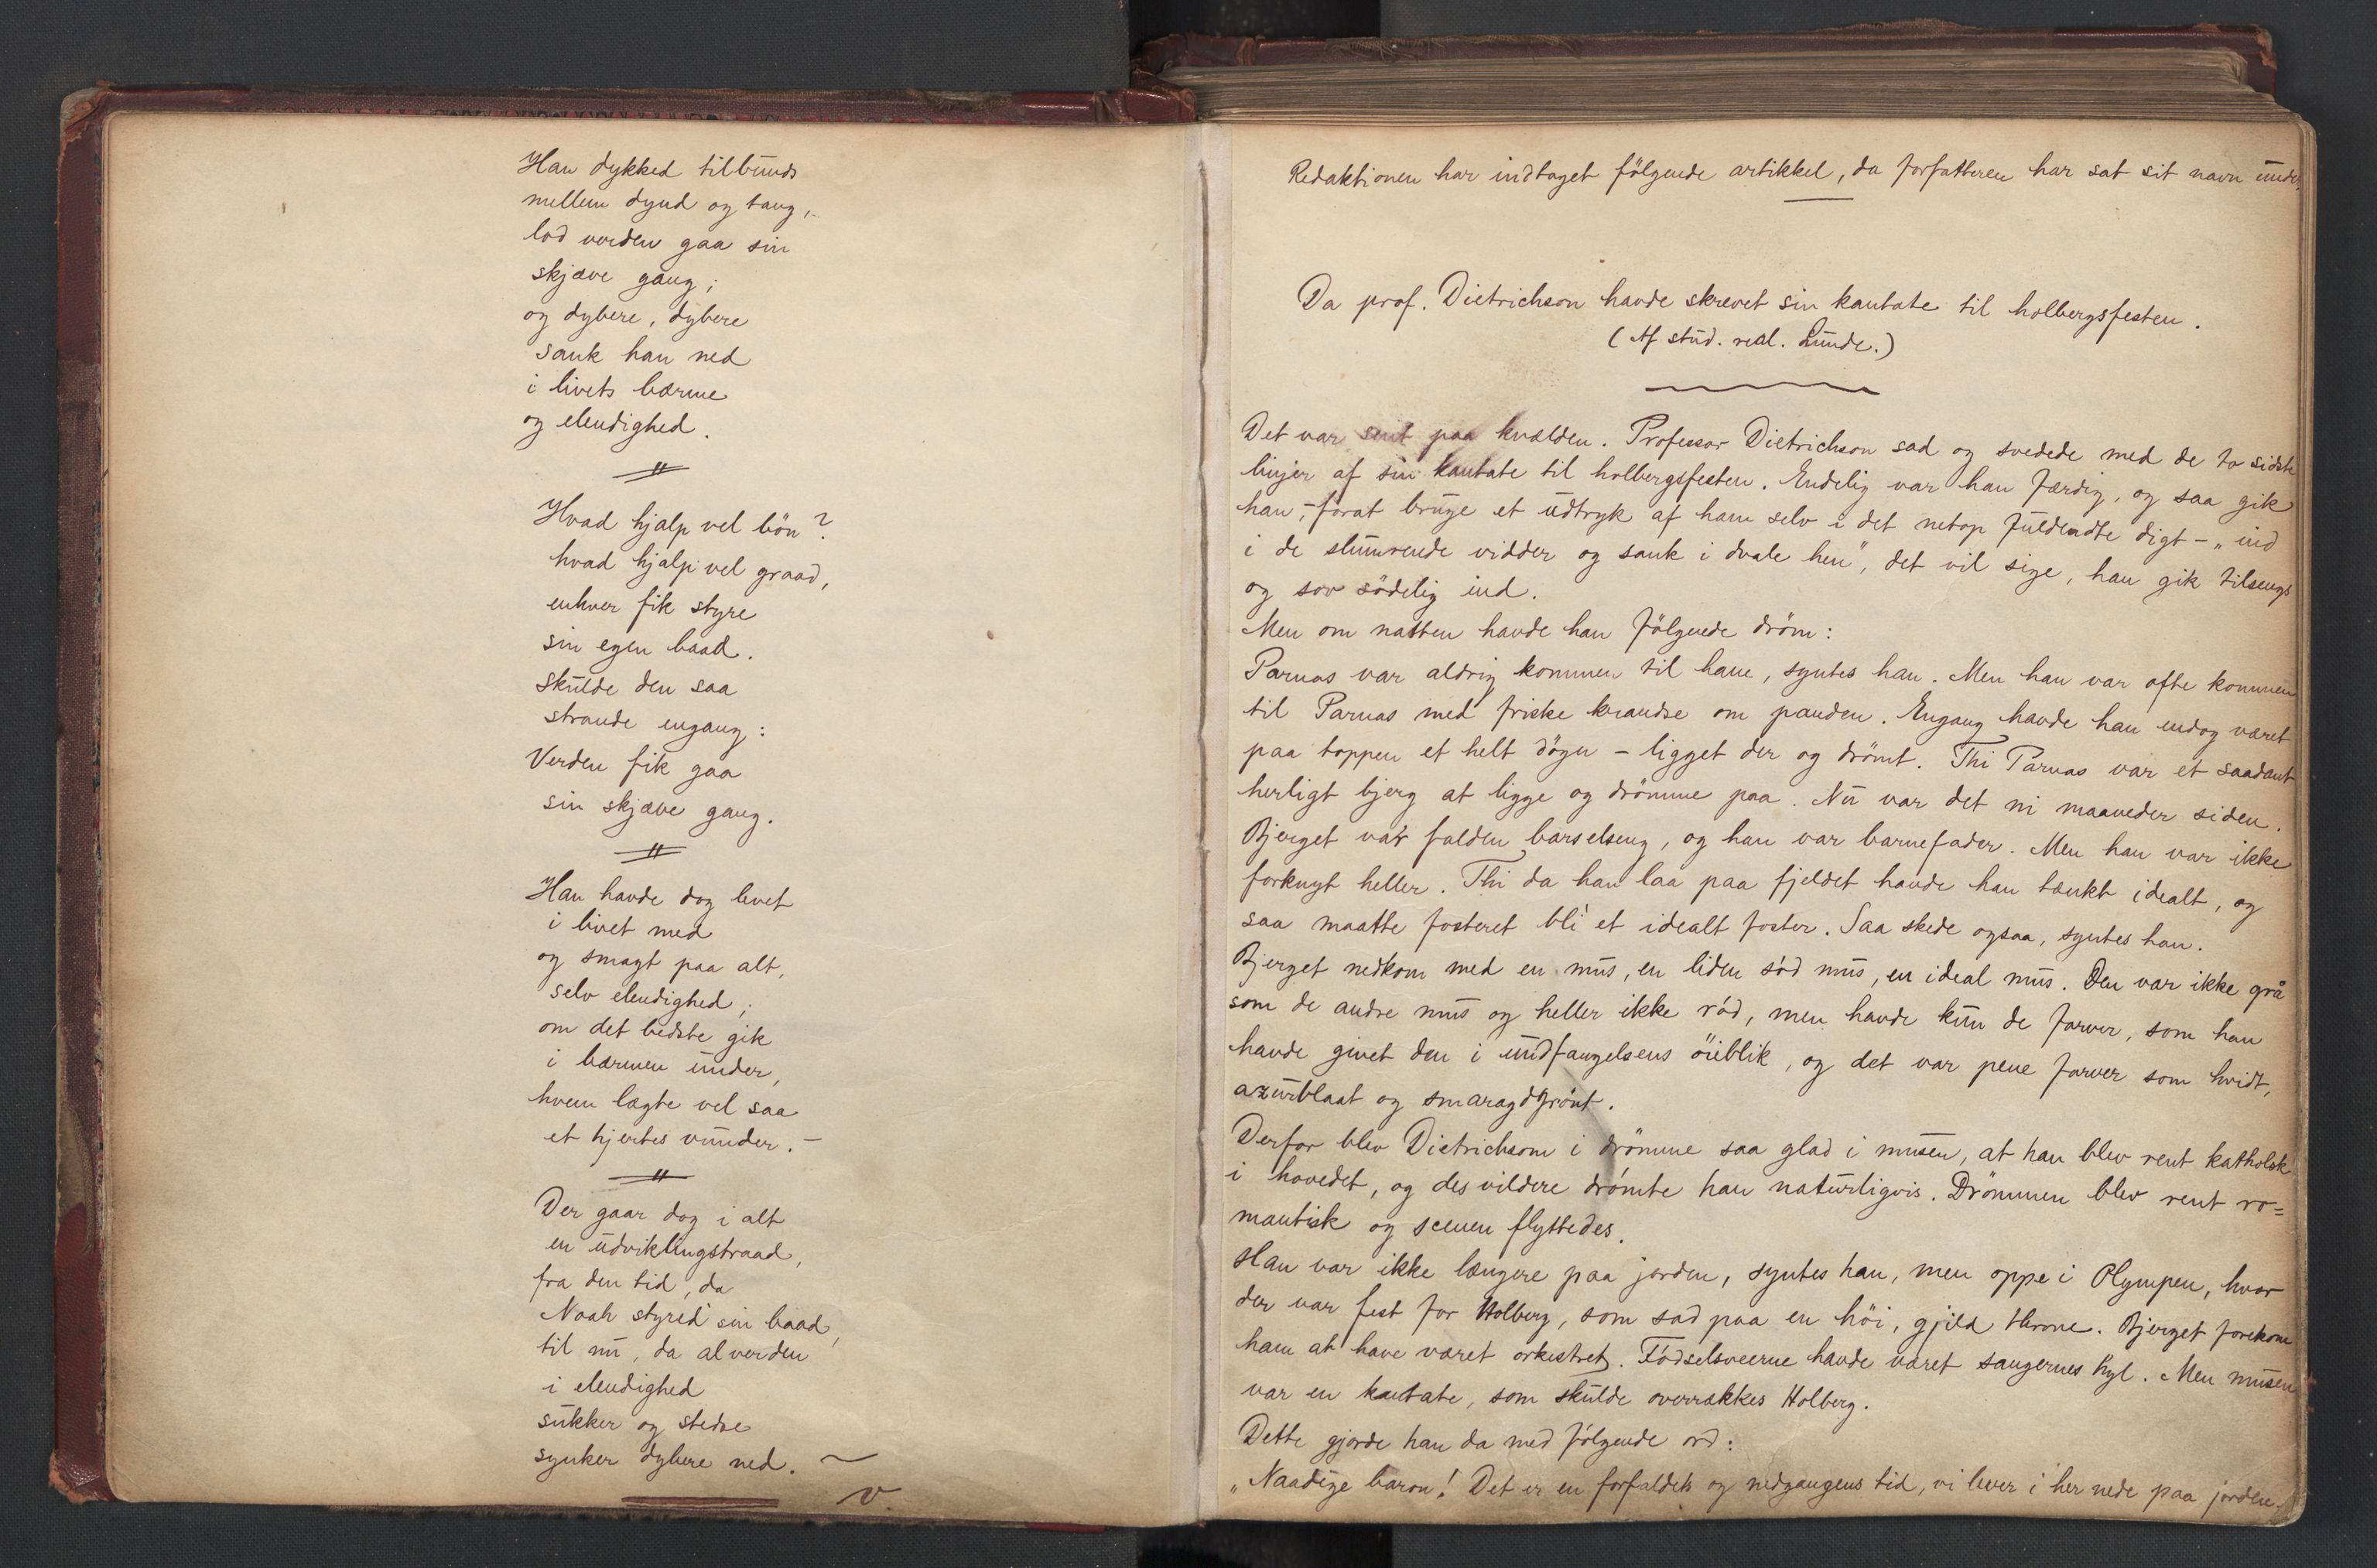 Han dykked tilbunds
mellem dynd og tang,
lod verden gaa sin
skjæve gang;
og dybere, dybere
sank han ned
i livets bærme
og elendighed.
Hvad hjalp vel bön?
hvad hjalp vel graad,
enhver fik styre
sin egen baad.
Skulde den saa
strande engang:
Verden fik gaa
sin skjæve gang.
Han havde dog levet
i livet med
og smagt paa alt,
selv elendighed;
om det bedste gik
i bærmen under,
hvem lægte vel saa
et hjertes vunder. –
Der gaar dog i alt
en udviklingstraad,
fra den tid, da
Noah styred' sin baad,
til nu, da al verden
i elendighed
sukker og stedse
synker dybere ned. –
V.
Redaktionen har indtaget fölgende artikkel, da forfatteren har sat sit navn under.
Da prof. Dietrichson havde skrevet sin kantate til holbergsfesten.
(Af stud. real. Lunde.)
Det var sent paa kvælden. Professor Dietrichson sad og svedede med de to sidste
linjer af sin kantate til holbergsfesten. Endelig var han færdig, og saa gik
han, – forat bruge et udtryk af ham selv i det netop fuldendte digt – „ind
i de slumrende vidder og sank i dvale hen", det vil sige, han gik tilsengs
og sov södelig ind.
Men om natten havde han fölgende dröm:
Parnas var aldrig kommen til ham, syntes han. Men han var ofte kommen
til Parnas med friske krandse om panden. Engang havde han endog været
paa toppen et helt dögn – ligget der og drömt. Thi Parnas var et saadant
herligt bjerg at ligge og drömme paa. Nu var det ni maaneder siden.
Bjerget var falden i barselseng, og han var barnefader. Men han var ikke
forknyt heller. Thi da han laa paa fjeldet havde han tænkt idealt, og
saa maatte fosteret bli et idealt foster. Saa skede ogsaa, syntes han.
Bjerget nedkom med en mus, en liden söd mus, en ideal mus. Den var ikke grå
som de andre mus og heller ikke röd, men havde kun de farver, som han
havde givet den i undfangelsens öieblik, og det var pene farver som hvidt,
azurblaat og smaragdgrönt.
Derfor blev Dietrichson i drömme saa glad i musen, at han blev rent katholsk
i hovedet, og des vildere drömte han naturligvis. Drömmen blev rent ro=
mantisk og scenen flyttedes.
Han var ikke længere paa jorden, syntes han, men oppe i Olympen, hvor
der var fest for Holberg, som sad paa en höi, gjild throne. Bjerget forekom
ham at have været orkestret. Födselsveerne havde været sangernes hyl. Men musen
var en kantate, som skulde overrækkes Holberg.
Dette gjorde han da med fölgende ord:
„Naadige baron! Det er en forfaldets og nedgangens tid, vi lever i her nede paa jorden.